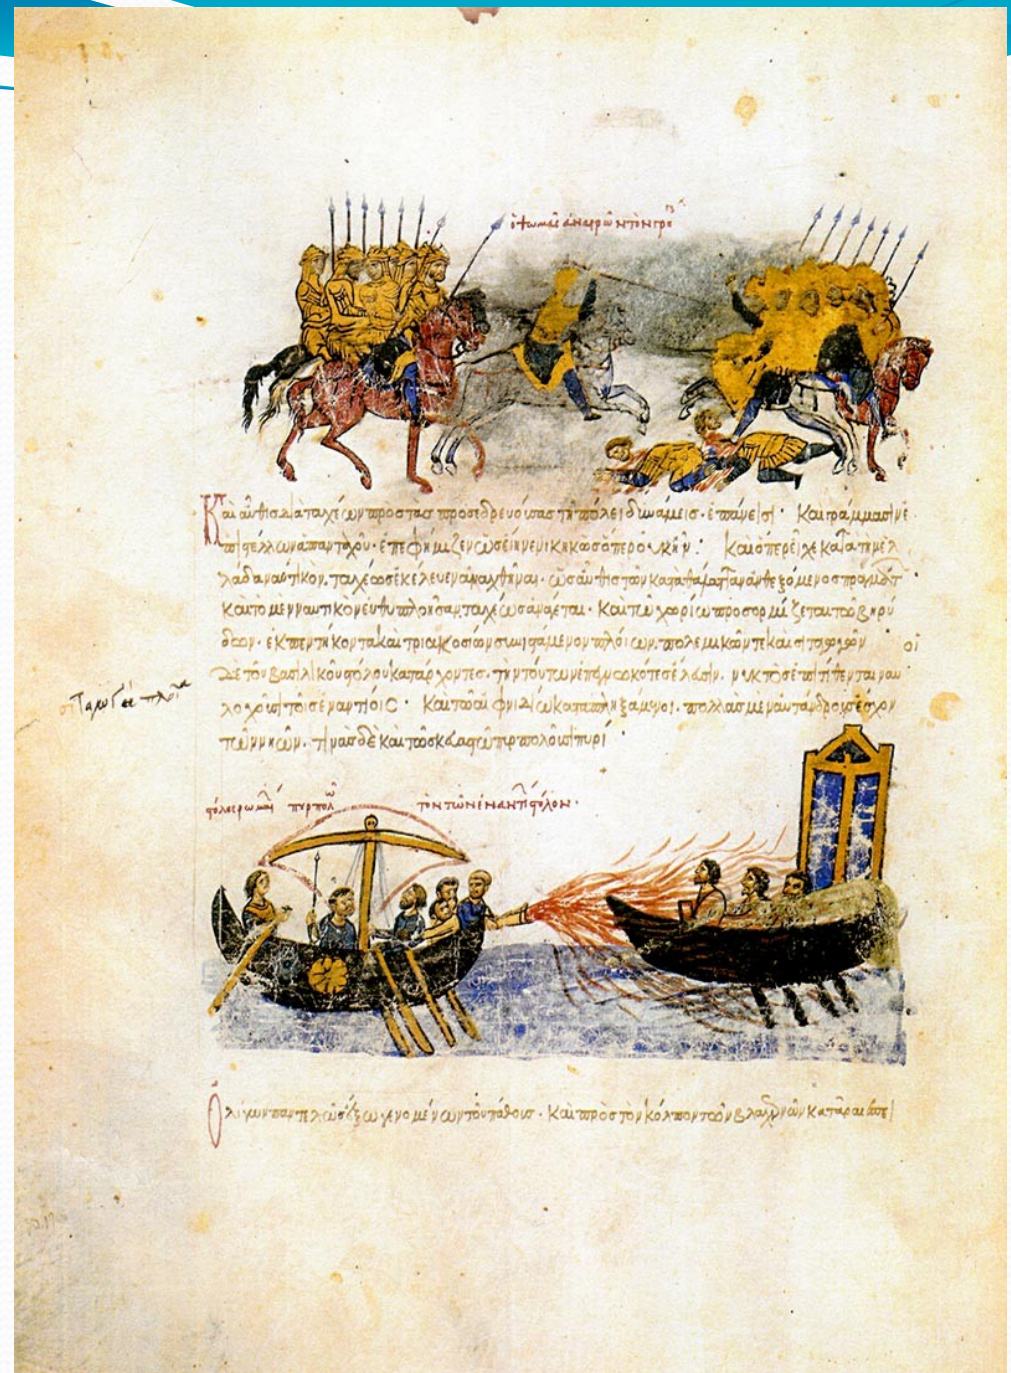 ὁ θωμᾶς ἀναιρῶν τὸν γρη
Καὶ αὖθις διὰ ταχέων πρὸς τὰς προσεδρευούσας τῇ πόλει δυνάμεις· ἐπάνεισι· Καὶ γράμμασιν ἐ
πιστέλλων ἁπανταχοῦ· ἐπεφήμιζεν ὡς εἴη νενικηκὼς ὅπερ οὐκ ἦν· Καὶ ὅπερ εἶχε κατὰ τὴν ἑλ
λάδα ναυτικὸν, ταχέως ἐκέλευεν ἀναχθῆναι· ὡς αὖθις τῶν κατὰ θάλατταν ἀνθεξόμενος πραγμάτ
Καὶ τὸ μὲν ναυτικὸν εὐθυπλοῆσαν, ταχέως ἀνάγεται· Καὶ τῷ χωρίῳ προσορμίζεται τῶν βηρύ
δων· ἐκ πεντήκοντα καὶ τριακοσίων συνισάμενον πλοίων, πολεμικῶν τε καὶ σιταγωγῶν· οἱ
δὲ τοῦ βασιλικοῦ στόλου κατάρχοντες· τὴν τούτων ἐπεγνωκότες ἔλασιν, νυκτὸς ἐπιτίθενται ναυ
λοχοῦσι τοῖς ἐναντίοις· Καὶ τῷ αἰφνιδίῳ καταπληξάμενοι· πολλὰς μὲν αὐτάνδρους ἔσχον
τῶν νηῶν· τινὰς δὲ καὶ τῷ σκευαστῷ πυρπολοῦσι πυρί
στόλος ῥωμαίων πυρπολῶν τὸν τῶν ἐναντίων στόλον·
Ὀλίγων παντελῶς ἔξω γενομένων τοῦ πάθους· Καὶ πρὸς τὸν κόλπον τῶν βλαχερνῶν καταραι